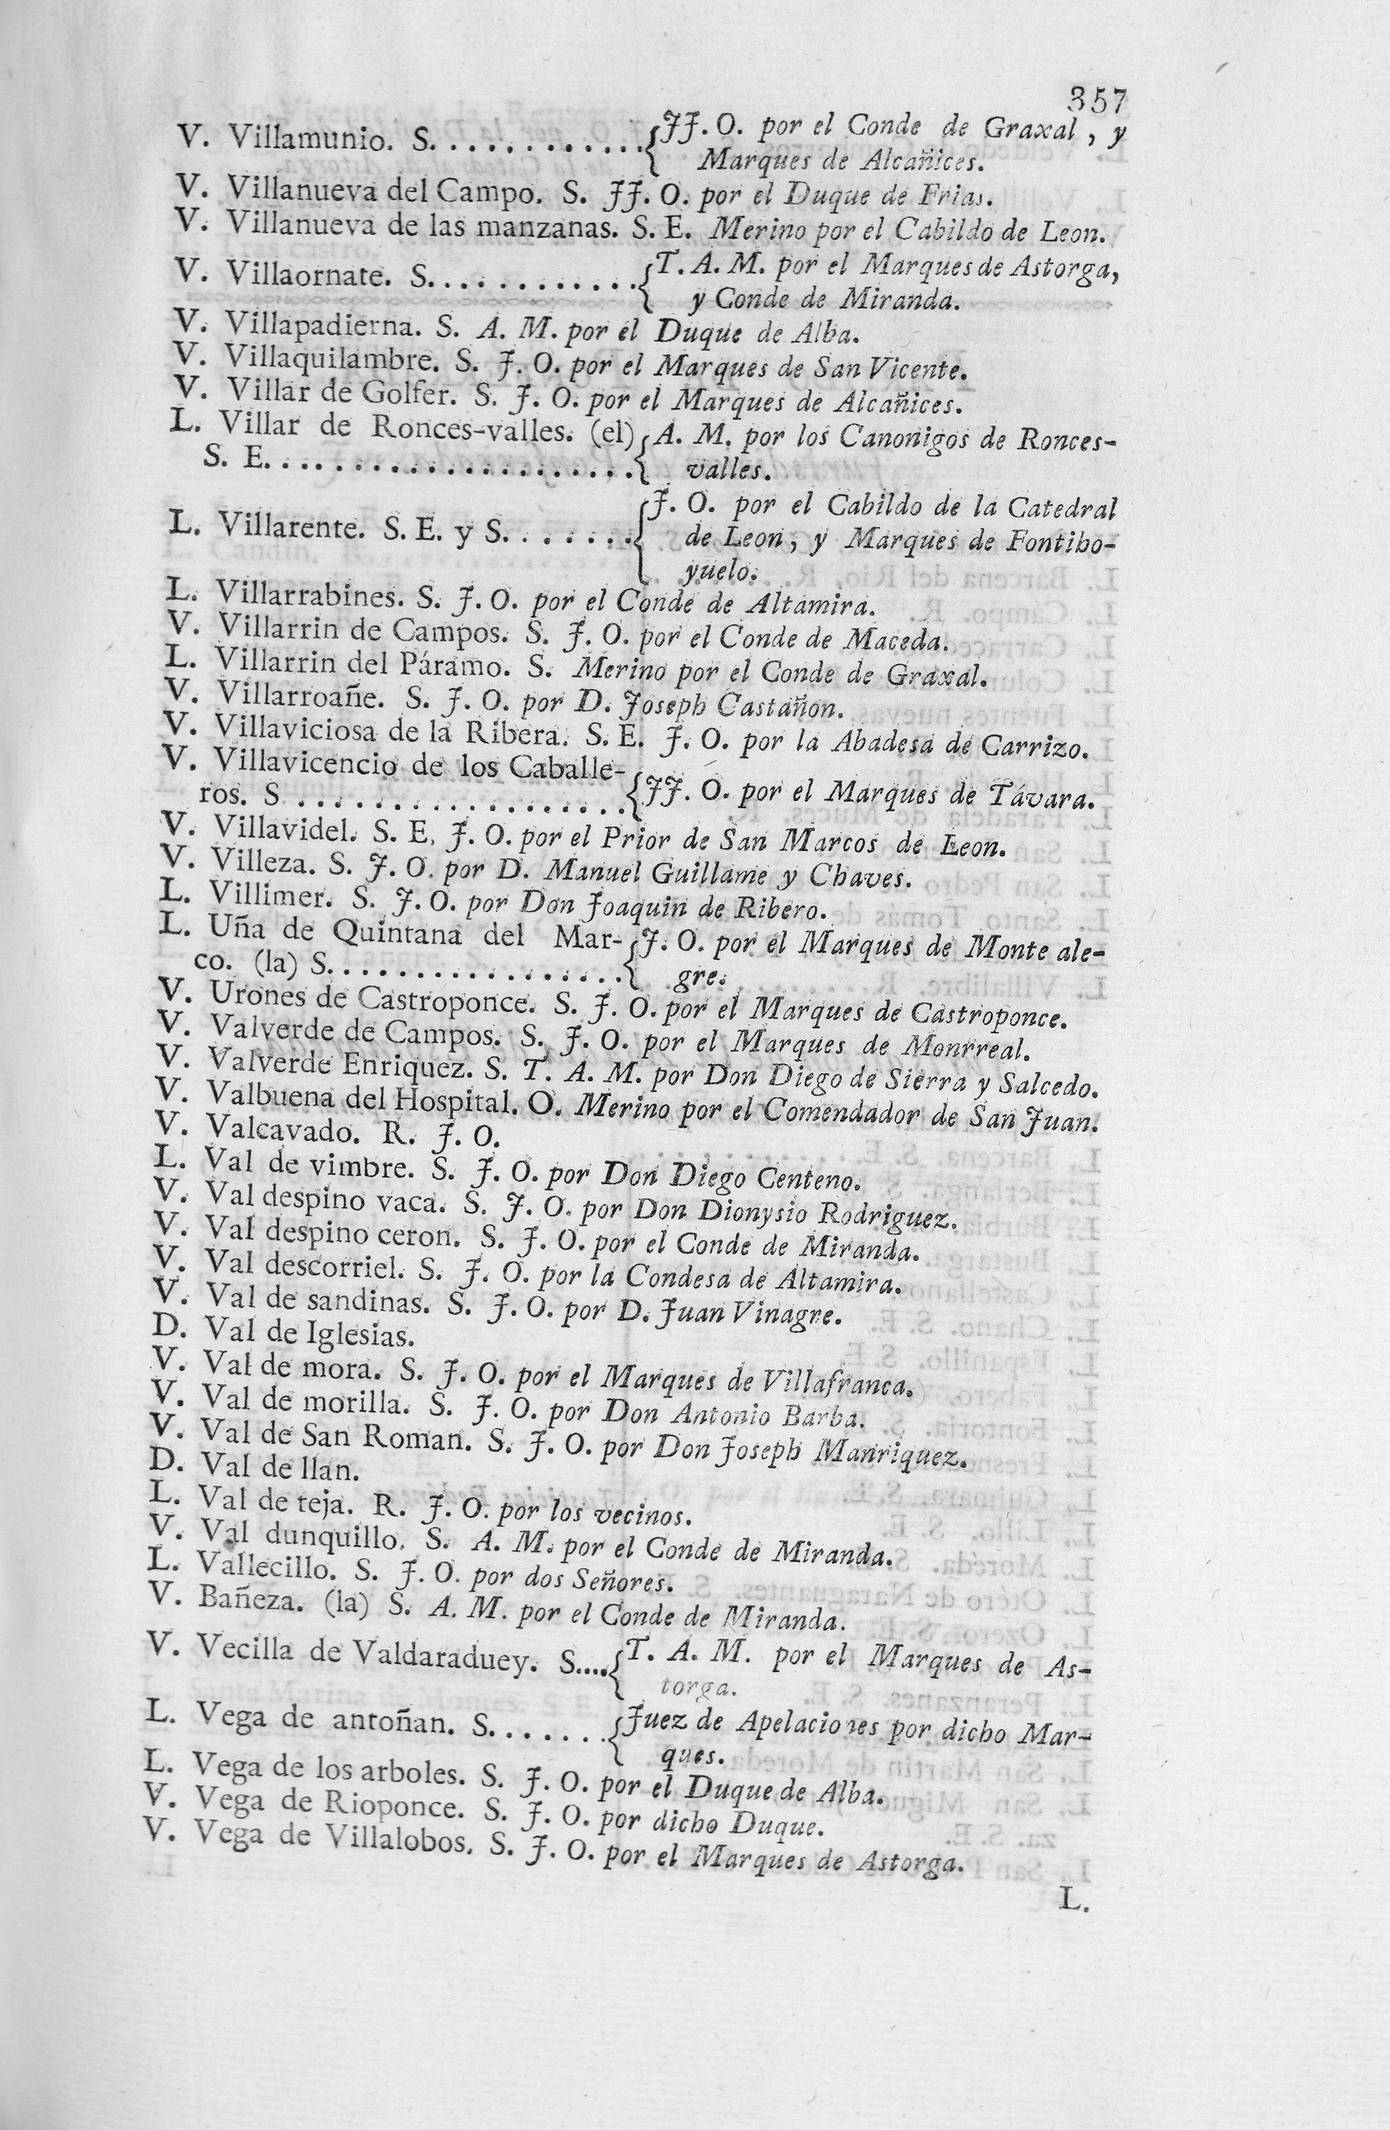 357
V. Villamunio. S. . . . . . . . . . . . . {JJ. O. por el Conde de Graxal, y
Marques de Alcañices.
V. Villanueva del Campo. S. JJ. O. por el Duque de Frias.
V. Villanueva de las manzanas. S. E. Merino por el Cabildo de Leon.
V. Villaornate. S. . . . . . . . . . . . . {T. A. M. por el Marques de Astorga,
y Conde de Miranda.
V. Villapadierna. S. A. M. por el Duque de Alba.
V. Villaquilambre. S. J. O. por el Marques de San Vicente.
V. Villar de Golfer. S. J. O. por el Marques de Alcañices.
L. Villar de Ronces-valles. (el) {A. M. por los Canonigos de Ronces-
S. E. . . . . . . . . . . . . . . . . . . . . valles.
{J. O. por el Cabildo de la Catedral
L. Villarente. S. E. y S. . . . . . . . de Leon, y Marques de Fontiho-
yuelo.
L. Villarrabines. S. J. O. por el Conde de Altamira.
V. Villarrin de Campos. S. J. O. por el Conde de Maceda.
L. Villarrin del Páramo. S. Merino por el Conde de Graxal.
V. Villarroañe. S. J. O. por D. Joseph Castañon.
V. Villaviciosa de la Ribera. S. E. J. O. por la Abadesa de Carrizo.
V. Villavicencio de los Caballe-
ros. S . . . . . . . . . . . . . . . . . . . {JJ. O. por el Marques de Távara.
V. Villavidel. S. E. J. O. por el Prior de San Marcos de Leon.
V. Villeza. S. J. O. por D. Manuel Guillame y Chaves.
L. Villimer. S. J. O. por Don Joaquin de Ribero.
L. Uña de Quintana del Mar- {J. O. por el Marques de Monte ale-
co. (la) S. . . . . . . . . . . . . . . . . . gre.
V. Urones de Castroponce. S. J. O. por el Marques de Castroponce.
V. Valverde de Campos. S. J. O. por el Marques de Monrreal.
V. Valverde Enriquez. S. T. A. M. por Don Diego de Sierra y Salcedo.
V. Valbuena del Hospital. O. Merino por el Comendador de San Juan.
V. Valcavado. R. J. O.
L. Val de vimbre. S. J. O. por Don Diego Centeno.
V. Val despino vaca. S. J. O. por Don Dionysio Rodriguez.
V. Val despino ceron. S. J. O. por el Conde de Miranda.
V. Val descorriel. S. J. O. por la Condesa de Altamira.
V. Val de sandinas. S. J. O. por D. Juan Vinagre.
D. Val de Iglesias.
V. Val de mora. S. J. O. por el Marques de Villafranca.
V. Val de morilla. S. J. O. por Don Antonio Barba.
V. Val de San Roman. S. J. O. por Don Joseph Manriquez.
D. Val de llan.
L. Val de teja. R. J. O. por los vecinos.
V. Val dunquillo. S. A. M. por el Conde de Miranda.
L. Vallecillo. S. J. O. por dos Señores.
V. Bañeza. (la) S. A. M. por el Conde de Miranda.
V. Vecilla de Valdaraduey. S.... {T. A. M. por el Marques de As-
torga.
L. Vega de antoñan. S. . . . . . . {Juez de Apelaciones por dicho Mar-
ques.
L. Vega de los arboles. S. J. O. por el Duque de Alba.
V. Vega de Rioponce. S. J. O. por dicho Duque.
V. Vega de Villalobos. S. J. O. por el Marques de Astorga.
L.